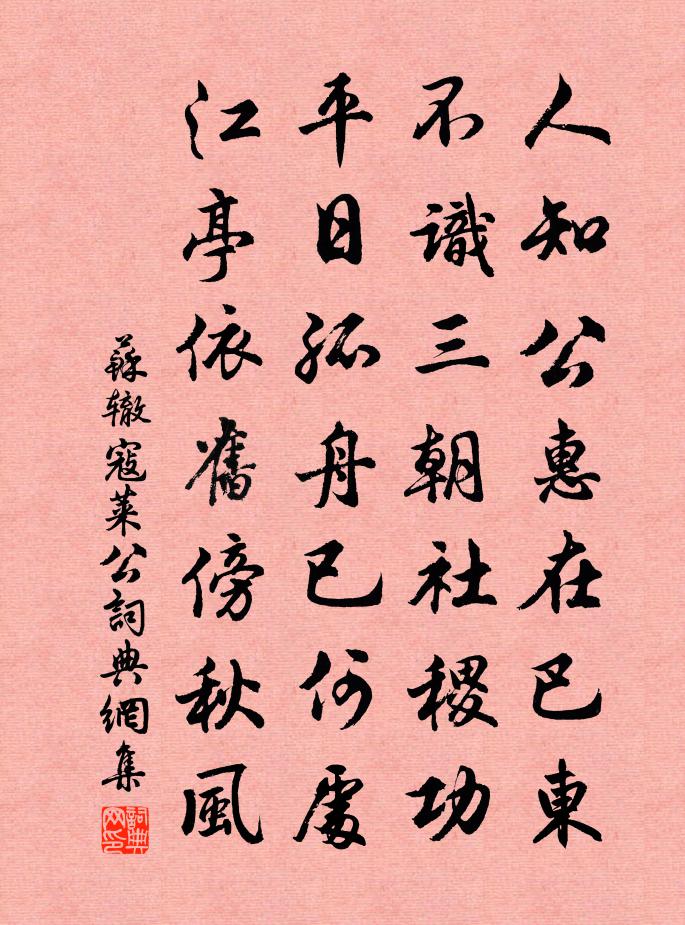 人知公惠在巴東
不識三朝社稷功
平日孤舟已何處
江亭依舊傍秋風
蘇辙寇莱公詞典網集
詞典网印